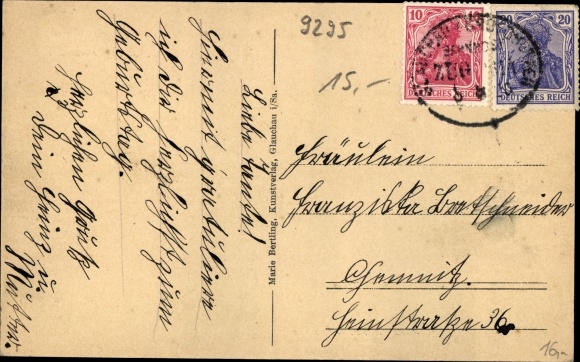 Liebe Tante!
Hiermit gratuliere
ich Dir herzlichst zum
Geburtstag.
Herzlichen Gruß
Dein Heinz u
Mutter.
Marie Bertling, Kunstverlag, Glauchau i/Sa.
9295
15,-
10
DEUTSCHES REICH
20
DEUTSCHES REICH
Fräulein
Franziska Bretschneider
Chemnitz.
Heinstraße 36
16,-